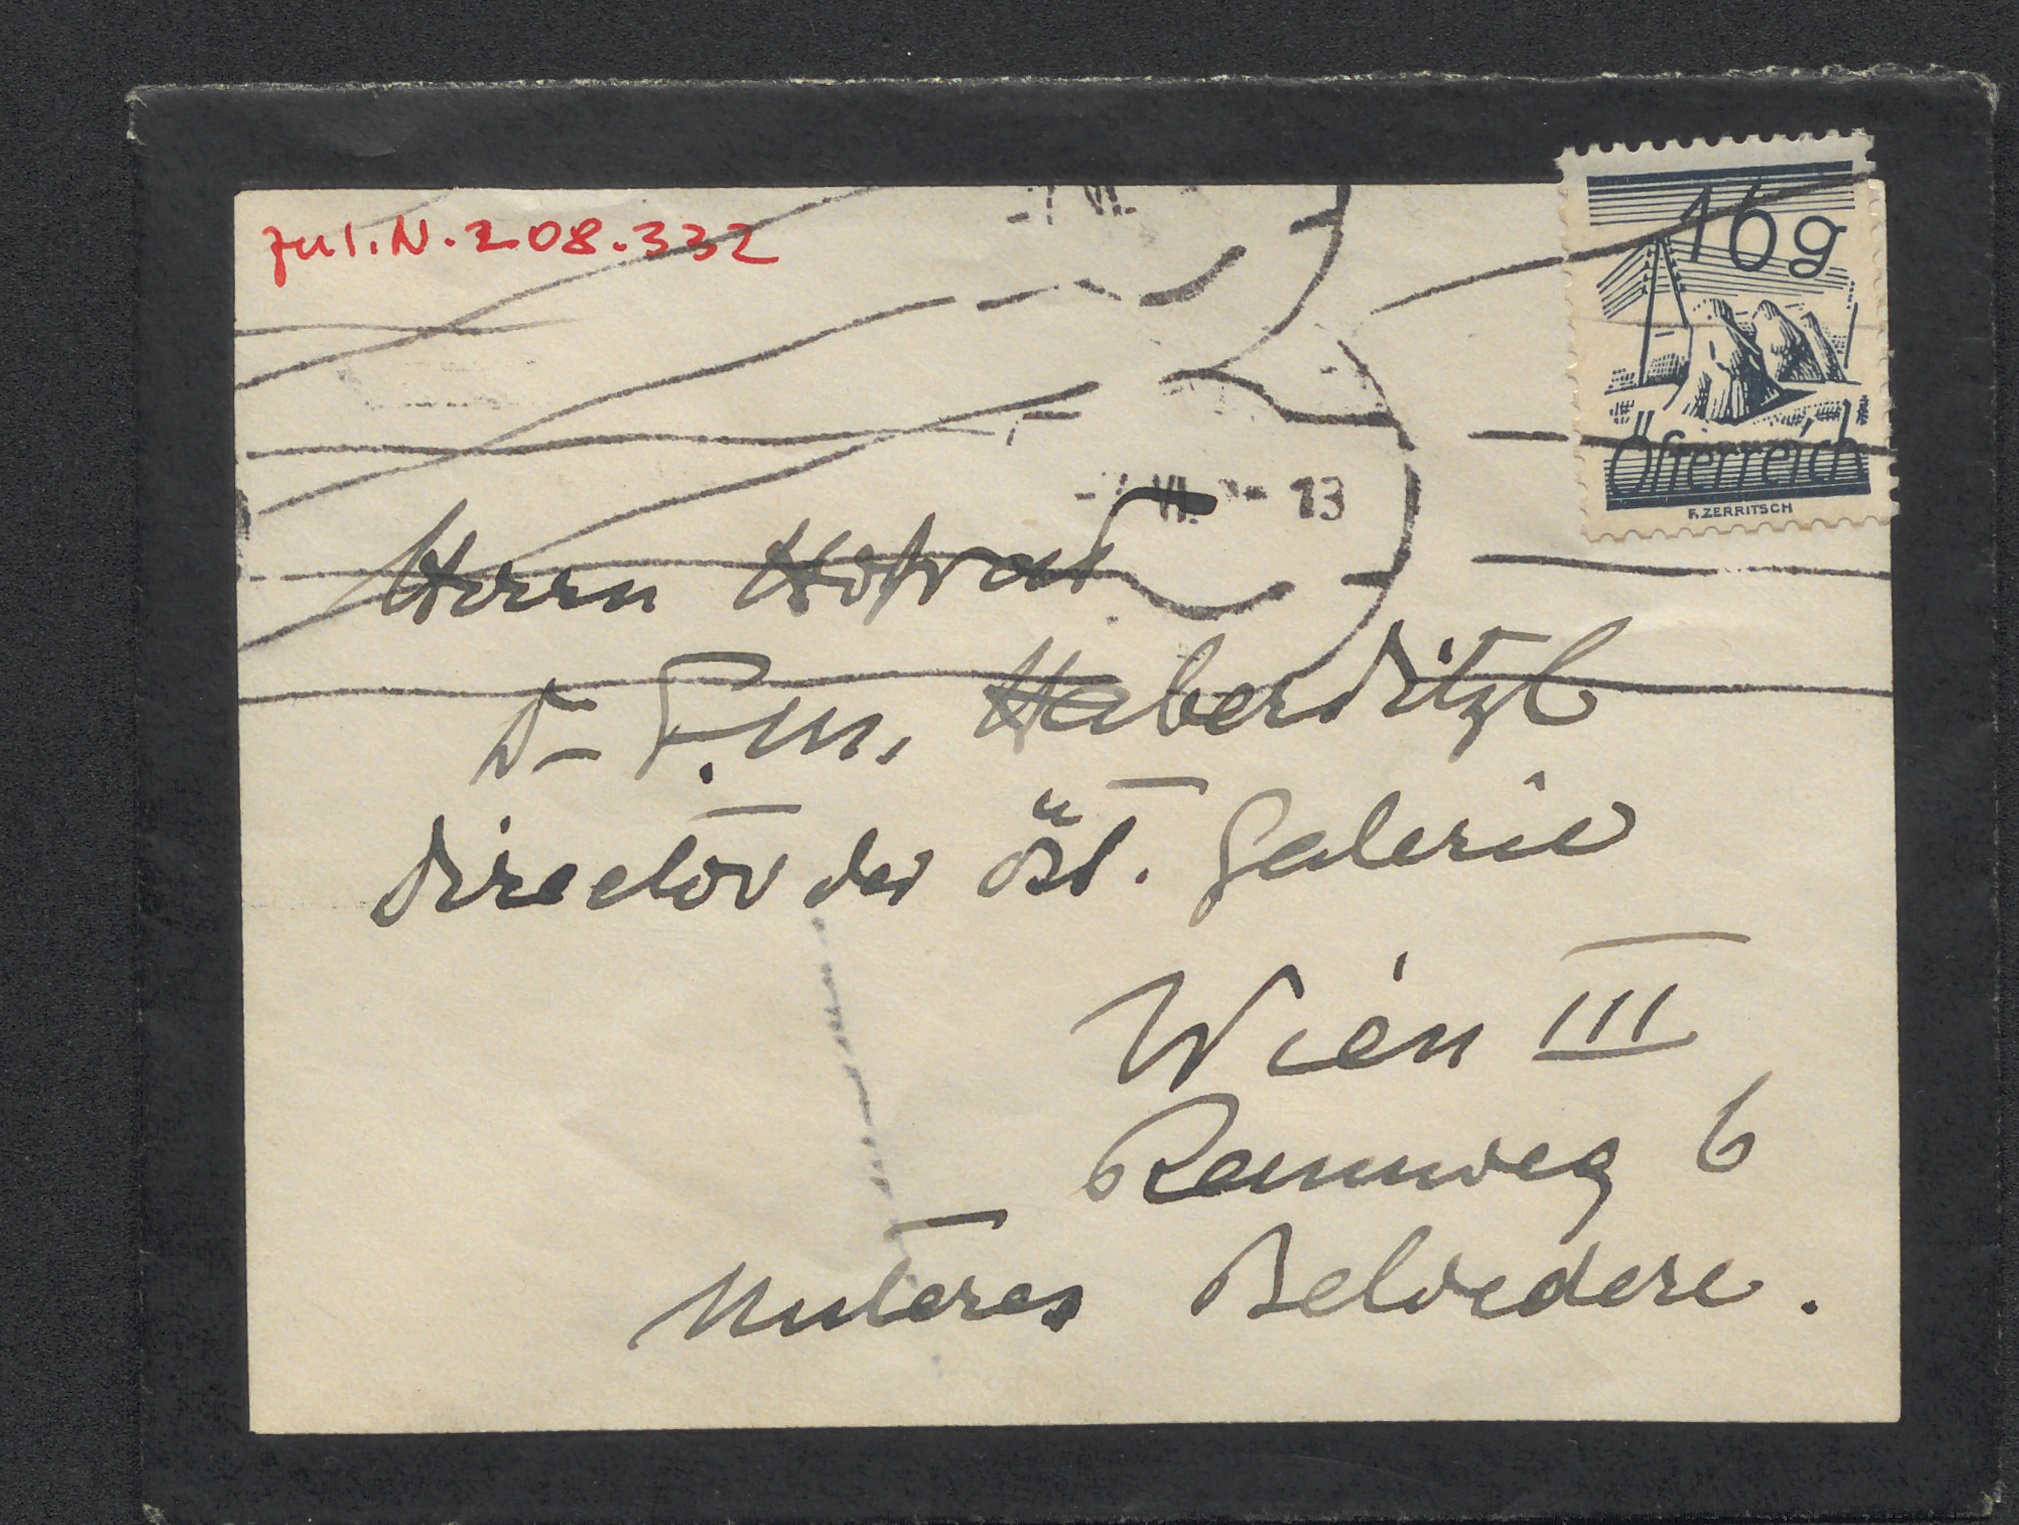 zu I.N. 208.332
16 g
Österreich
F. ZERRITSCH
VI.
VI. 13
Herrn Hofrat
Dr F. M. Haberditzl
Director der öst. Galerie
Wien III
Rennweg 6
Unteres Belvedere.